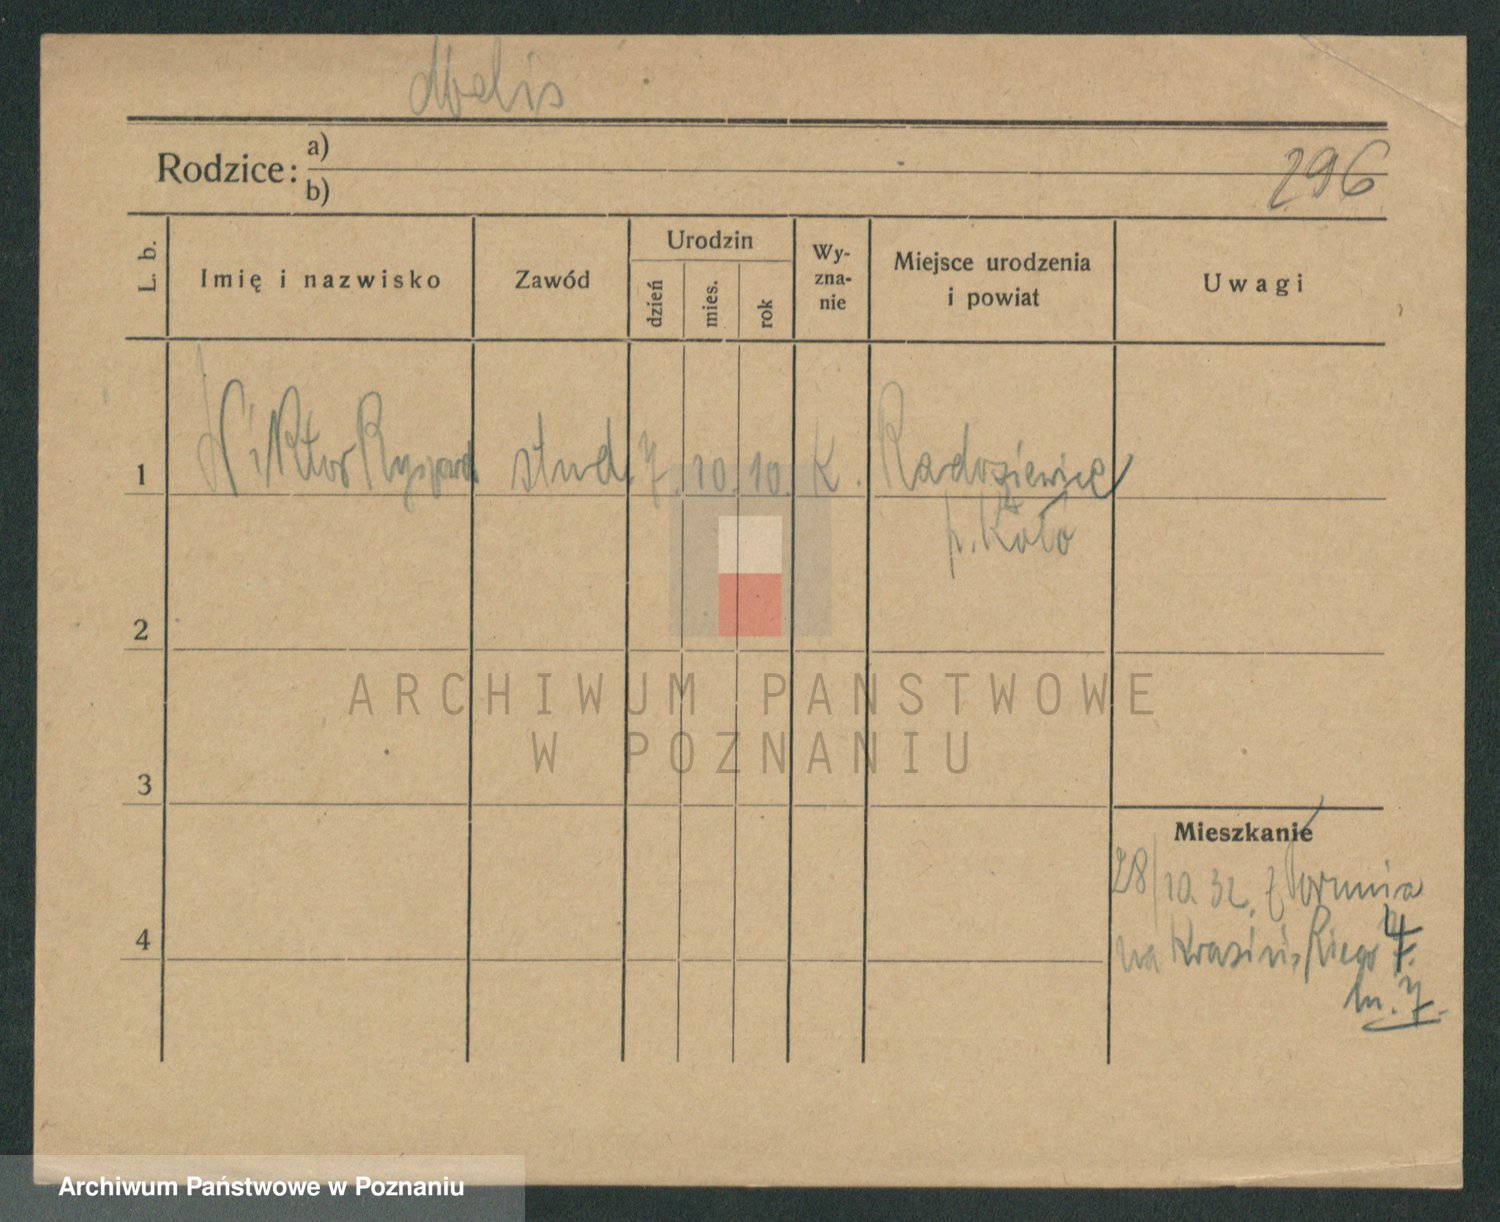 Abelis
Rodzice: a)
b)
296
L. b.
Imię i nazwisko
Zawód
Urodzin
dzień
mies.
rok
Wy-
zna-
nie
Miejsce urodzenia
i powiat
Uwagi
1
Wiktor Ryszard
stud.
7. 10. 10.
K.
Radziewice
p. Koło
2
3
4
Mieszkanie
28/10 32. z Torunia
na Krasińskiego 4.
m. 7.
ARCHIWUM PANSTWOWE
W POZNANIU
Archiwum Państwowe w Poznaniu